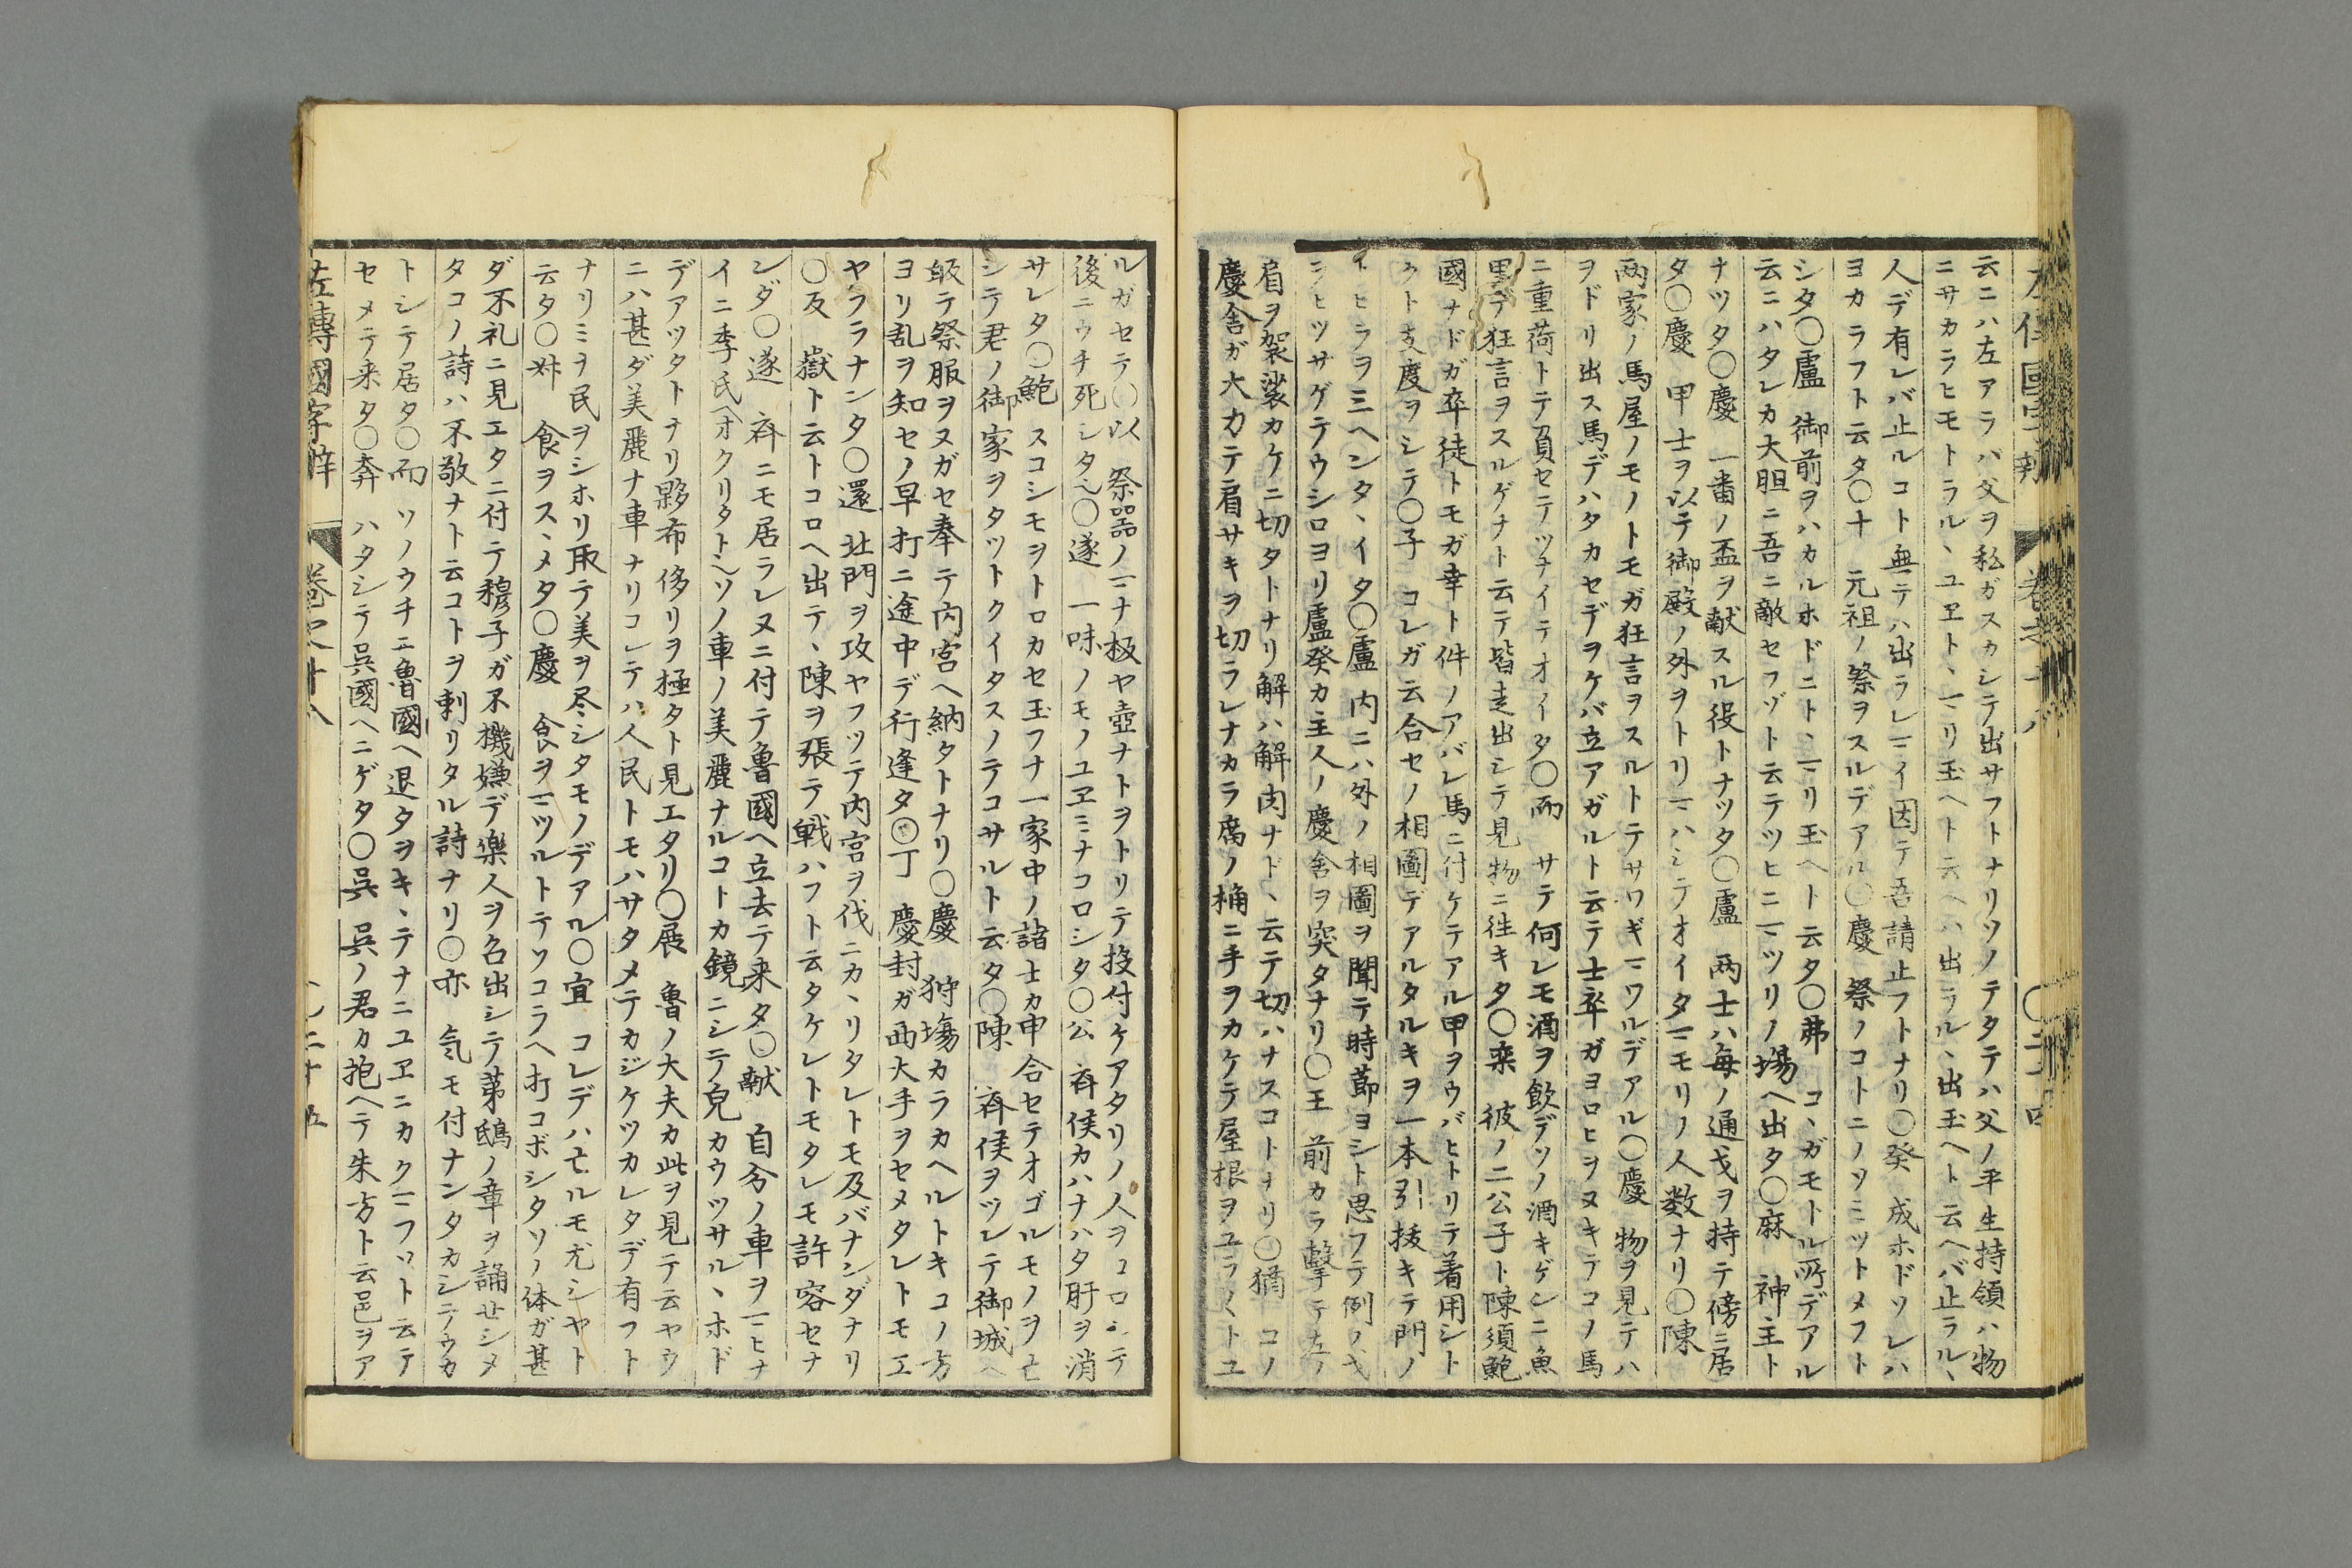 云ニハ左アラハ父ヲ私ガスカシテ出サフトナリソノテタテハ父ノ平生持領ハ物
ニサカラヒモトラル、ユヱト、マリ玉ヘト云ヘハ出ラル、出玉ヘト云ヘバ止ラル、
人デ有レバ止ルコト無テハ出ラレマイ因テ吾請止フトナリ〇癸 成ホドソレハ
ヨカラフト云タ〇十 元祖ノ祭ヲスルデアル〇慶 祭ノコトニノソミツトメフト
シタ〇盧 御前ヲハカルホドニト、マリ玉ヘト云タ〇弗 コ、ガモトル所デアル
云ニハタレカ大胆ニ吾ニ敵セフゾト云テツヒニマツリノ場ヘ出タ〇麻 神主ト
ナツタ〇慶 一番ノ盃ヲ献スル役トナツタ〇盧 両士ハ毎ノ通戈ヲ持テ傍ニ居
タ〇慶 甲士ヲ以テ御殿ノ外ヲトリマハシテオイタマモリノ人数ナリ〇陳
両家ノ馬屋ノモノトモガ狂言ヲスルトテサワギマワルデアル〇慶 物ヲ見テハ
ヲドリ出ス馬デハタカセデヲケバ立アガルト云テ士卒ガヨロヒヲヌキテコノ馬
ニ重荷トテ負セテツナイテオイタ〇而 サテ何レモ酒ヲ飲デソノ酒キゲンニ魚
里デ狂言ヲスルゲナト云テ皆走出シテ見物ニ徃キタ〇栾 彼ノ二公子ト陳須鮑
國ナドガ卒徒トモガ幸ト件ノアバレ馬ニ付ケテアル甲ヲウバヒトリテ着用シト
クト支度ヲシテ〇子 コレガ云合セノ相圖デアルタルキヲ一本引抜キテ門ノ
トヒラヲ三ヘンタ、イタ〇盧 内ニハ外ノ相圖ヲ聞テ時節ヨシト思フテ例ノ戈
ヲヒツサゲテウシロヨリ盧癸カ主人ノ慶舎ヲ突タナリ〇王 前カラ撃テ左ノ
肩ヲ袈裟カケニ切タトナリ解ハ解肉ナド、云テ切ハナスコトナリ〇猶 コノ
慶舎ガ大力テ肩サキヲ切ラレナカラ廟ノ桷ニ手ヲカケテ屋根ヲユラ〱トユ
ルガセテ〇以 祭器ノマナ板ヤ壺ナトヲトリテ投付ケアタリノ人ヲコロシテ
後ニウチ死シタ〇遂 一味ノモノユヱミナコロシタ〇公 斉侯カハナハタ肝ヲ消
サレタ〇鮑 スコシモヲトロカセ玉フナ一家中ノ諸士カ申合セテオゴルモノヲ亡
シテ君ノ御家ヲタツトクイタスノテコサルト云タ〇陳 斉侯ヲツレテ御城ヘ
皈テ祭服ヲヌガセ奉テ内宮ヘ納タトナリ〇慶 狩場カラカヘルトキコノ方
ヨリ乱ヲ知セノ早打ニ途中デ行逢タ◎丁 慶封ガ西大手ヲセメタレトモエ
ヤラナンタ〇還 北門ヲ攻ヤフツテ内宮ヲ伐ニカ、リタレトモ及バナンダナリ
〇反 嶽ト云トコロヘ出テ、陳ヲ張テ戦ハフト云タケレトモタレモ許容セナ
ンダ〇遂 斉ニモ居ラレヌニ付テ魯國ヘ立去テ来タ〇献 自分ノ車ヲマヒナ
イニ季氏ヘオクリタトソノ車ノ美麗ナルコトカ鏡ニシテ皃カウツサル、ホド
デアツタトナリ夥布侈リヲ極タト見エタリ〇展 魯ノ大夫カ此ヲ見テ云ヤウ
ニハ甚ダ美麗ナ車ナリコレテハ人民トモハサタメテカジケツカレタデ有フト
ナリミヲ民ヲシホリ取テ美ヲ尽シタモノデアル〇宜 コレデハ亡ルモ尤シヤト
云タ〇叔 食ヲス、メタ〇慶 食ヲマツルトテソコラヘ打コボシタソノ体ガ甚
ダ不礼ニ見エタニ付テ穆子ガ不機嫌デ楽人ヲ召出シテ茅鴟ノ章ヲ誦セシメ
タコノ詩ハ不敬ナト云コトヲ刺リタル詩ナリ〇亦 気モ付ナンタカシテウカ
トシテ居タ〇而 ソノウチニ魯國ヘ退タヲキ、テナニユヱニカクマフソト云テ
セメテ来タ〇奔 ハタシテ呉國ヘニゲタ〇呉 呉ノ君カ抱ヘテ朱方ト云邑ヲア
左傳國字辯 巻之十八 〇二十五